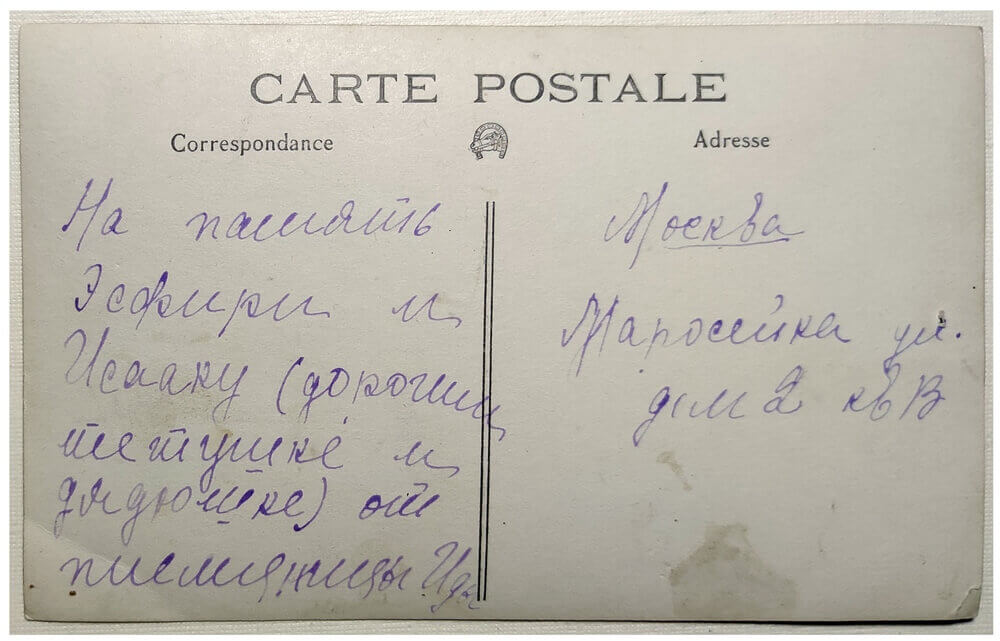 CARTE POSTALE
Correspondance
Adresse
На память
Эсфири и
Исааку (дорогим
тетушке и
дядюшке) от
племянницы Иды
Москва
Маросейка ул.
дом 2 кв В